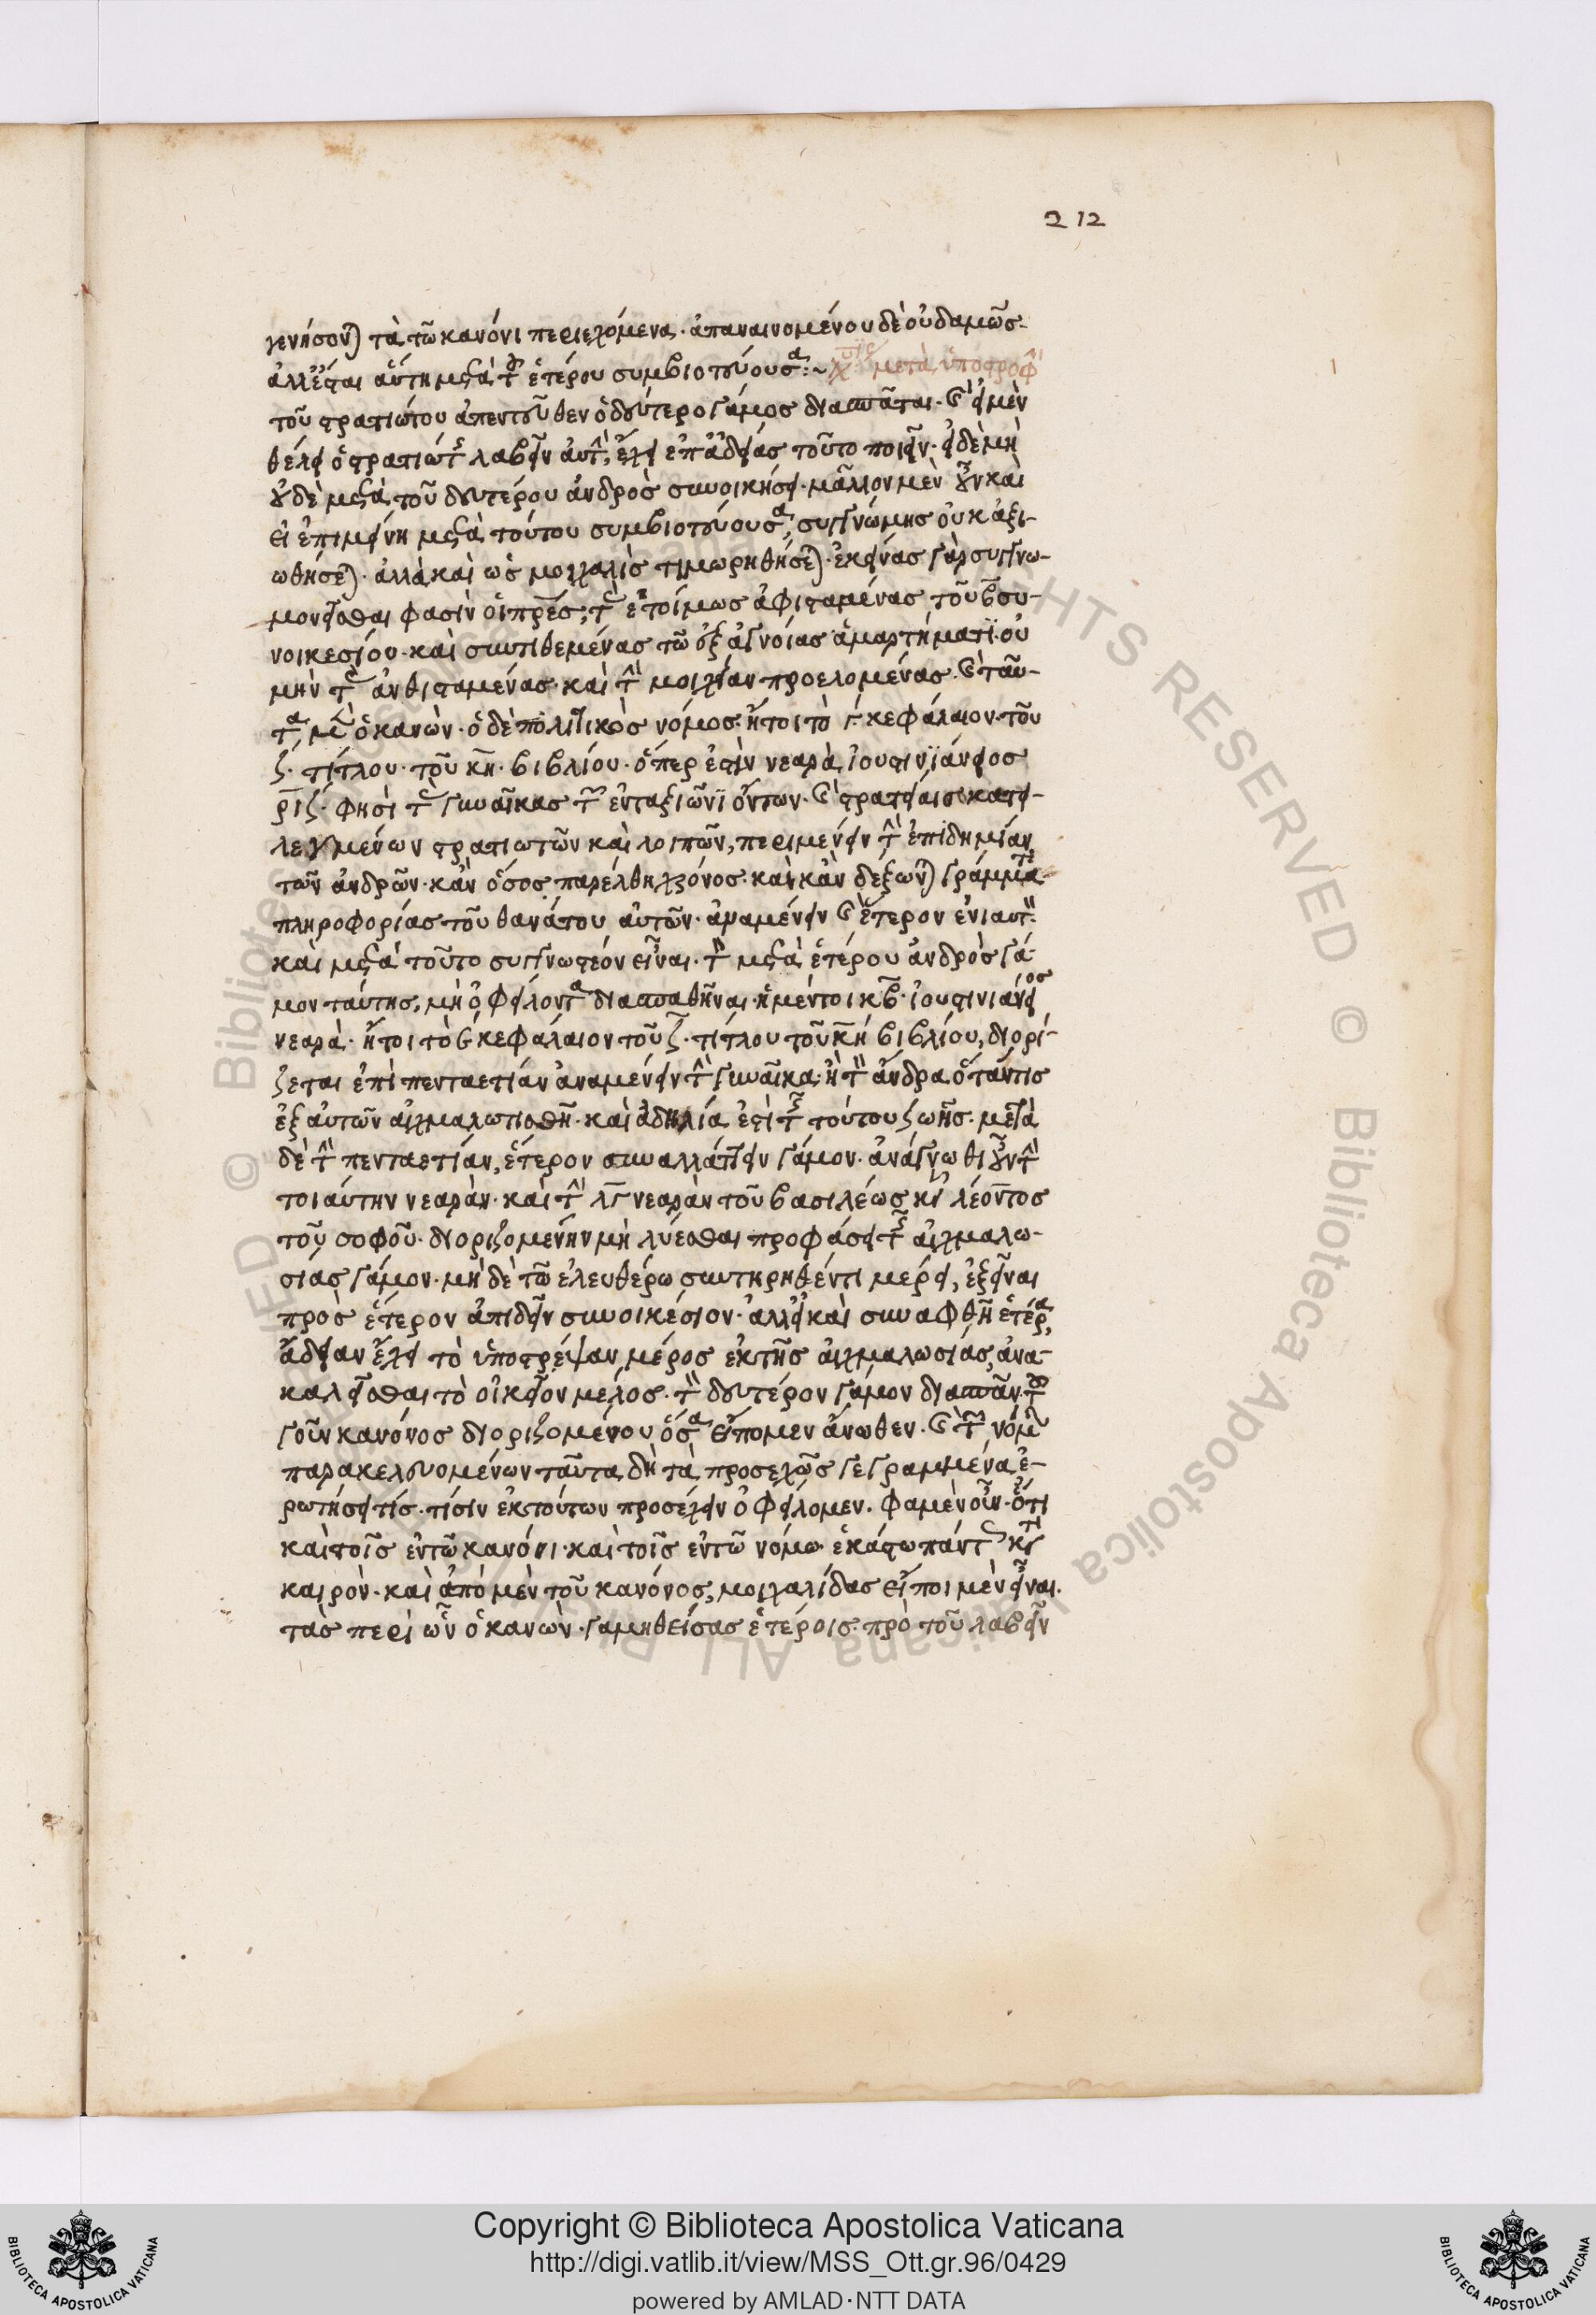 212
γενήσονται τὰ τῶ κανόνι περιεχόμενα· ἀπαναινομένου δὲ οὐδαμῶς·
ἀλλ' ἔσται αὕτη μετὰ τοῦ ἑτέρου συμβιοτεύουσα:~ μετὰ ὑποστροφὴν
τοῦ στρατιώτου ἀπεντεῦθεν ὁ δεύτερος γάμος διασπᾶται· καὶ εἰ μὲν
θέλει ὁ στρατιώτης λαβεῖν αὐτὴν, ἔχει ἐπ' ἀδείας τοῦτο ποιεῖν· εἰ δὲ μὴ
οὐδὲ μετὰ τοῦ δευτέρου ἀνδρὸς συνοικήσει· μᾶλλον μὲν οὖν καὶ
εἰ ἐπιμείνη μετὰ τούτου συμβιοτεύουσα, συγγνώμης οὐκ ἀξι-
ωθήσεται· ἀλλὰ καὶ ὡς μοιχαλὶς τιμωρηθήσεται· ἐκείνας γὰρ συγγνω-
μονεῖσθαι φασὶν οἱ πρες, τὰς ἑτοίμως ἀφισταμένας τοῦ β συ-
νοικεσίου· καὶ συντιθεμένας τῶ ἐξ ἀγνοίας ἁμαρτήματι· οὐ
μὴν τὰς ἀνθισταμένας· καὶ τὴν μοιχείαν προελομένας· καὶ ταῦ-
τα μὲν ὁ κανών· ὁ δὲ πολιτικὸς νόμος· ἤτοι τὸ γ κεφάλαιον· τοῦ
ζ· τίτλου· τοῦ κη· βιβλίου· ὅπερ ἐστὶν νεαρὰ ἰουστινϊάνειος
ριζ· φησὶ τὰς γυναῖκας τῶν ἐν ταξιῶνϊ ὄντων· καὶ στρατείαις κατει-
λεγμένων στρατιωτῶν καὶ λοιπῶν, περιμένειν τὴν ἐπιδημίαν
τῶν ἀνδρῶν· κἂν ὅσος παρέλθη χρόνος· κἂν κἂν δέξωνται γράμματα
πληροφορίας τοῦ θανάτου αὐτῶν· ἀναμένειν καὶ ἕτερον ἐνιαυτόν·
καὶ μετὰ τοῦτο συγγνωστέον εἶναι· τὸν μετὰ ἑτέρου ἀνδρὸς γά-
μον ταύτης, μὴ ὀφείλοντα διασπασθῆναι· ἡ μέντοι κβ· ἰουστινιάνειος
νεαρὰ· ἤτοι τὸ ϛ κεφάλαιον τοῦ ζ· τίτλου τοῦ κη βιβλίου, διορί-
ζεται ἐπὶ πενταετίαν ἀναμένειν τὴν γυναῖκα· ἢ τὸν ἄνδρα ὅταν τις
ἐξ αὐτῶν αἰχμαλωτισθῆ· καὶ ἀδηλία ἐστὶ τῆς τούτου ζωῆς· μετὰ
δὲ τὴν πενταετίαν, ἕτερον συναλλάττειν γάμον· ἀνάγνωθι οὖν τὴν
τοιαύτην νεαρὰν· καὶ τὴν λγ νεαρὰν τοῦ βασιλέως κυροῦ λέοντος
τοῦ σοφοῦ· διοριζομένην μὴ λύεσθαι προφάσει τῆς αἰχμαλω-
σιας γάμον· μὴ δὲ τῶ ἐλευθέρω συντηρηθέντι μέρει, ἐξεῖναι
πρὸς ἕτερον ἀπιδεῖν συνοικέσιον· ἀλλ' εἰ καὶ συναφθῆ ἑτέρα,
ἄδειαν ἔχει τὸ ὑποστρέψαν μέρος ἐκ τῆς αἰχμαλωσίας, ἀνα-
καλεῖσθαι τὸ οἰκεῖον μέλος· τὸν δεύτερον γάμον διασπᾶν· τοῦ
γοῦν κανόνος διοριζομένου ὅσα εἴπομεν ἄνωθεν· καὶ τῶν νόμων
παρακελευομένων ταῦτα δὴ τὰ προσεχῶς γεγραμμένα ἐ-
ρωτήσει τίς· τίσιν ἐκ τούτων προσέχειν ὀφείλομεν· φαμὲν οὖν· ὅτι
καὶ τοῖς ἐν τῶ κανόνι· καὶ τοῖς ἐν τῶ νόμω ἑκάστω πάντως κατὰ
καιρὸν· καὶ ἀπὸ μὲν τοῦ κανόνος, μοιχαλίδας εἴποιμεν εἶναι·
τὰς περὶ ὧν ὁ κανὼν· γαμηθείσας ἑτέροις· πρὸ τοῦ λαβεῖν
Copyright © Biblioteca Apostolica Vaticana
http://digi.vatlib.it/view/MSS_Ott.gr.96/0429
powered by AMLAD·NTT DATA
BIBLIOTECA APOSTOLICA VATICANA
BIBLIOTECA APOSTOLICA VATICANA